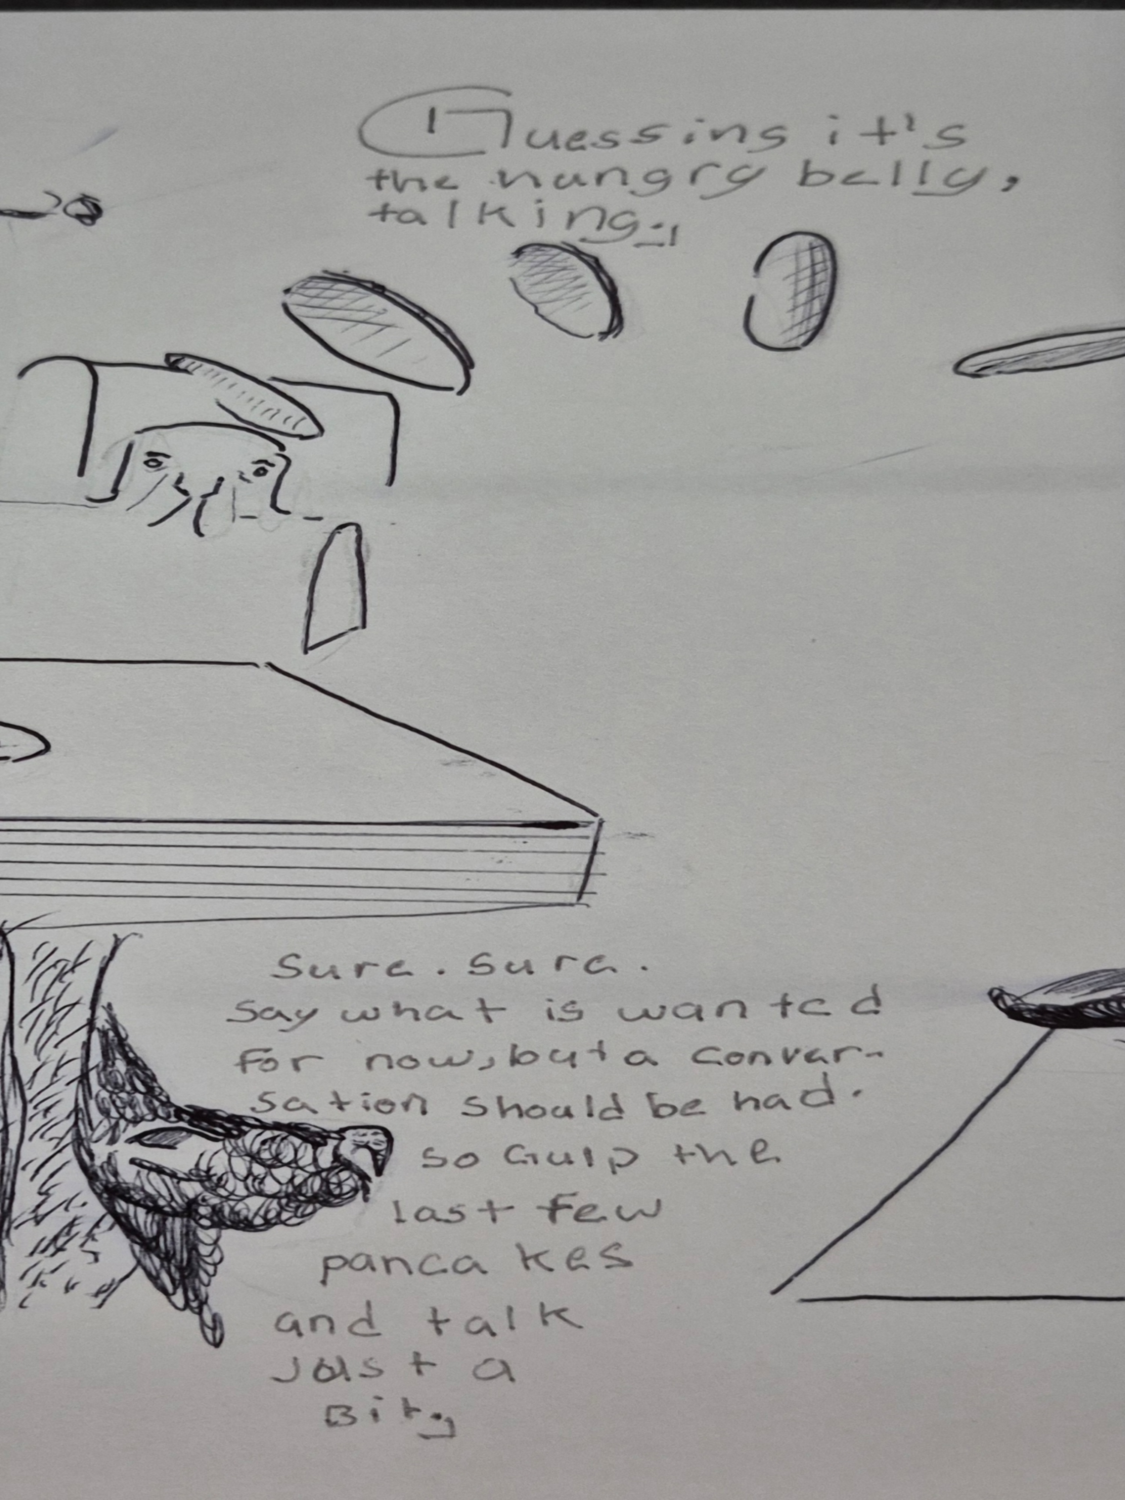 Guessing it's
the hungry belly,
talking.
Sure. Sure.
Say what is wanted
for now, but a conver-
sation should be had.
so Gulp the
last few
pancakes
and talk
Just a
Bit.